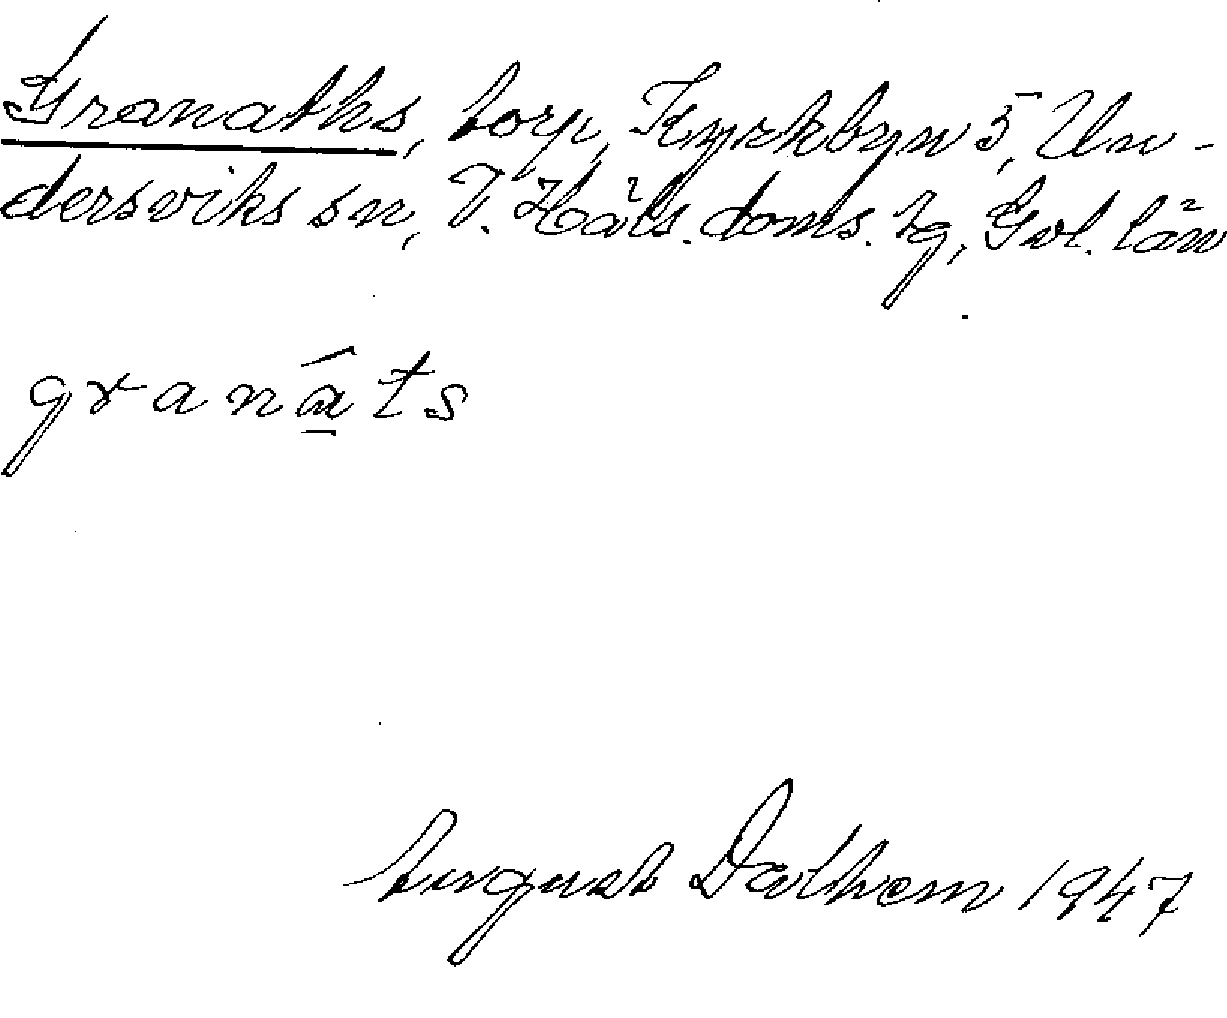 Granaths, torp, Kyrkbyn 5, Un-
dersviks sn, V. Häls. doms. hg, Gvl. län
granáts
August Dalhem 1947